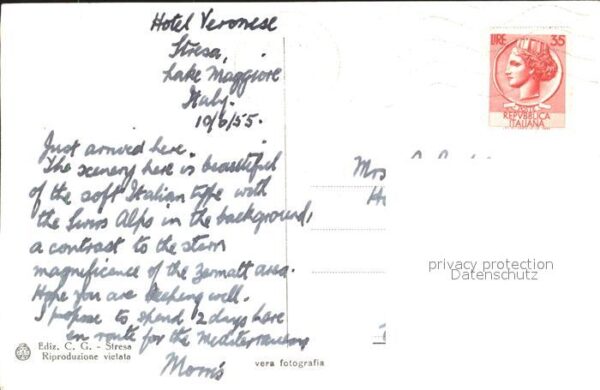 Hotel Veronese
Stresa,
Lake Maggiore
Italy.
10/6/55.
Just arrived here.
The scenery here is beautiful
of the soft Italian type with
the Swiss Alps in the background,
a contrast to the stern
magnificence of the Zematt area.
Hope you are keeping well.
I propose to spend 2 days here
en route for the Mediterranean
Morris
LIRE 35
POSTE
REPVBBLICA
ITALIANA
Mrs
privacy protection
Datenschutz
Ediz. C. G. - Stresa
Riproduzione vietata
vera fotografia